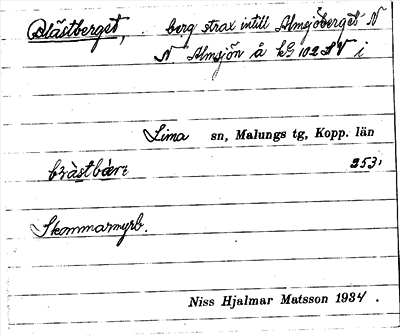 Blästberget, berg strax intill Almsjöberget N
N Almsjön å kG 102 SV i
Lima sn, Malungs tg, Kopp. län
253
Skommarmyrb.
Niss Hjalmar Matsson 1934.